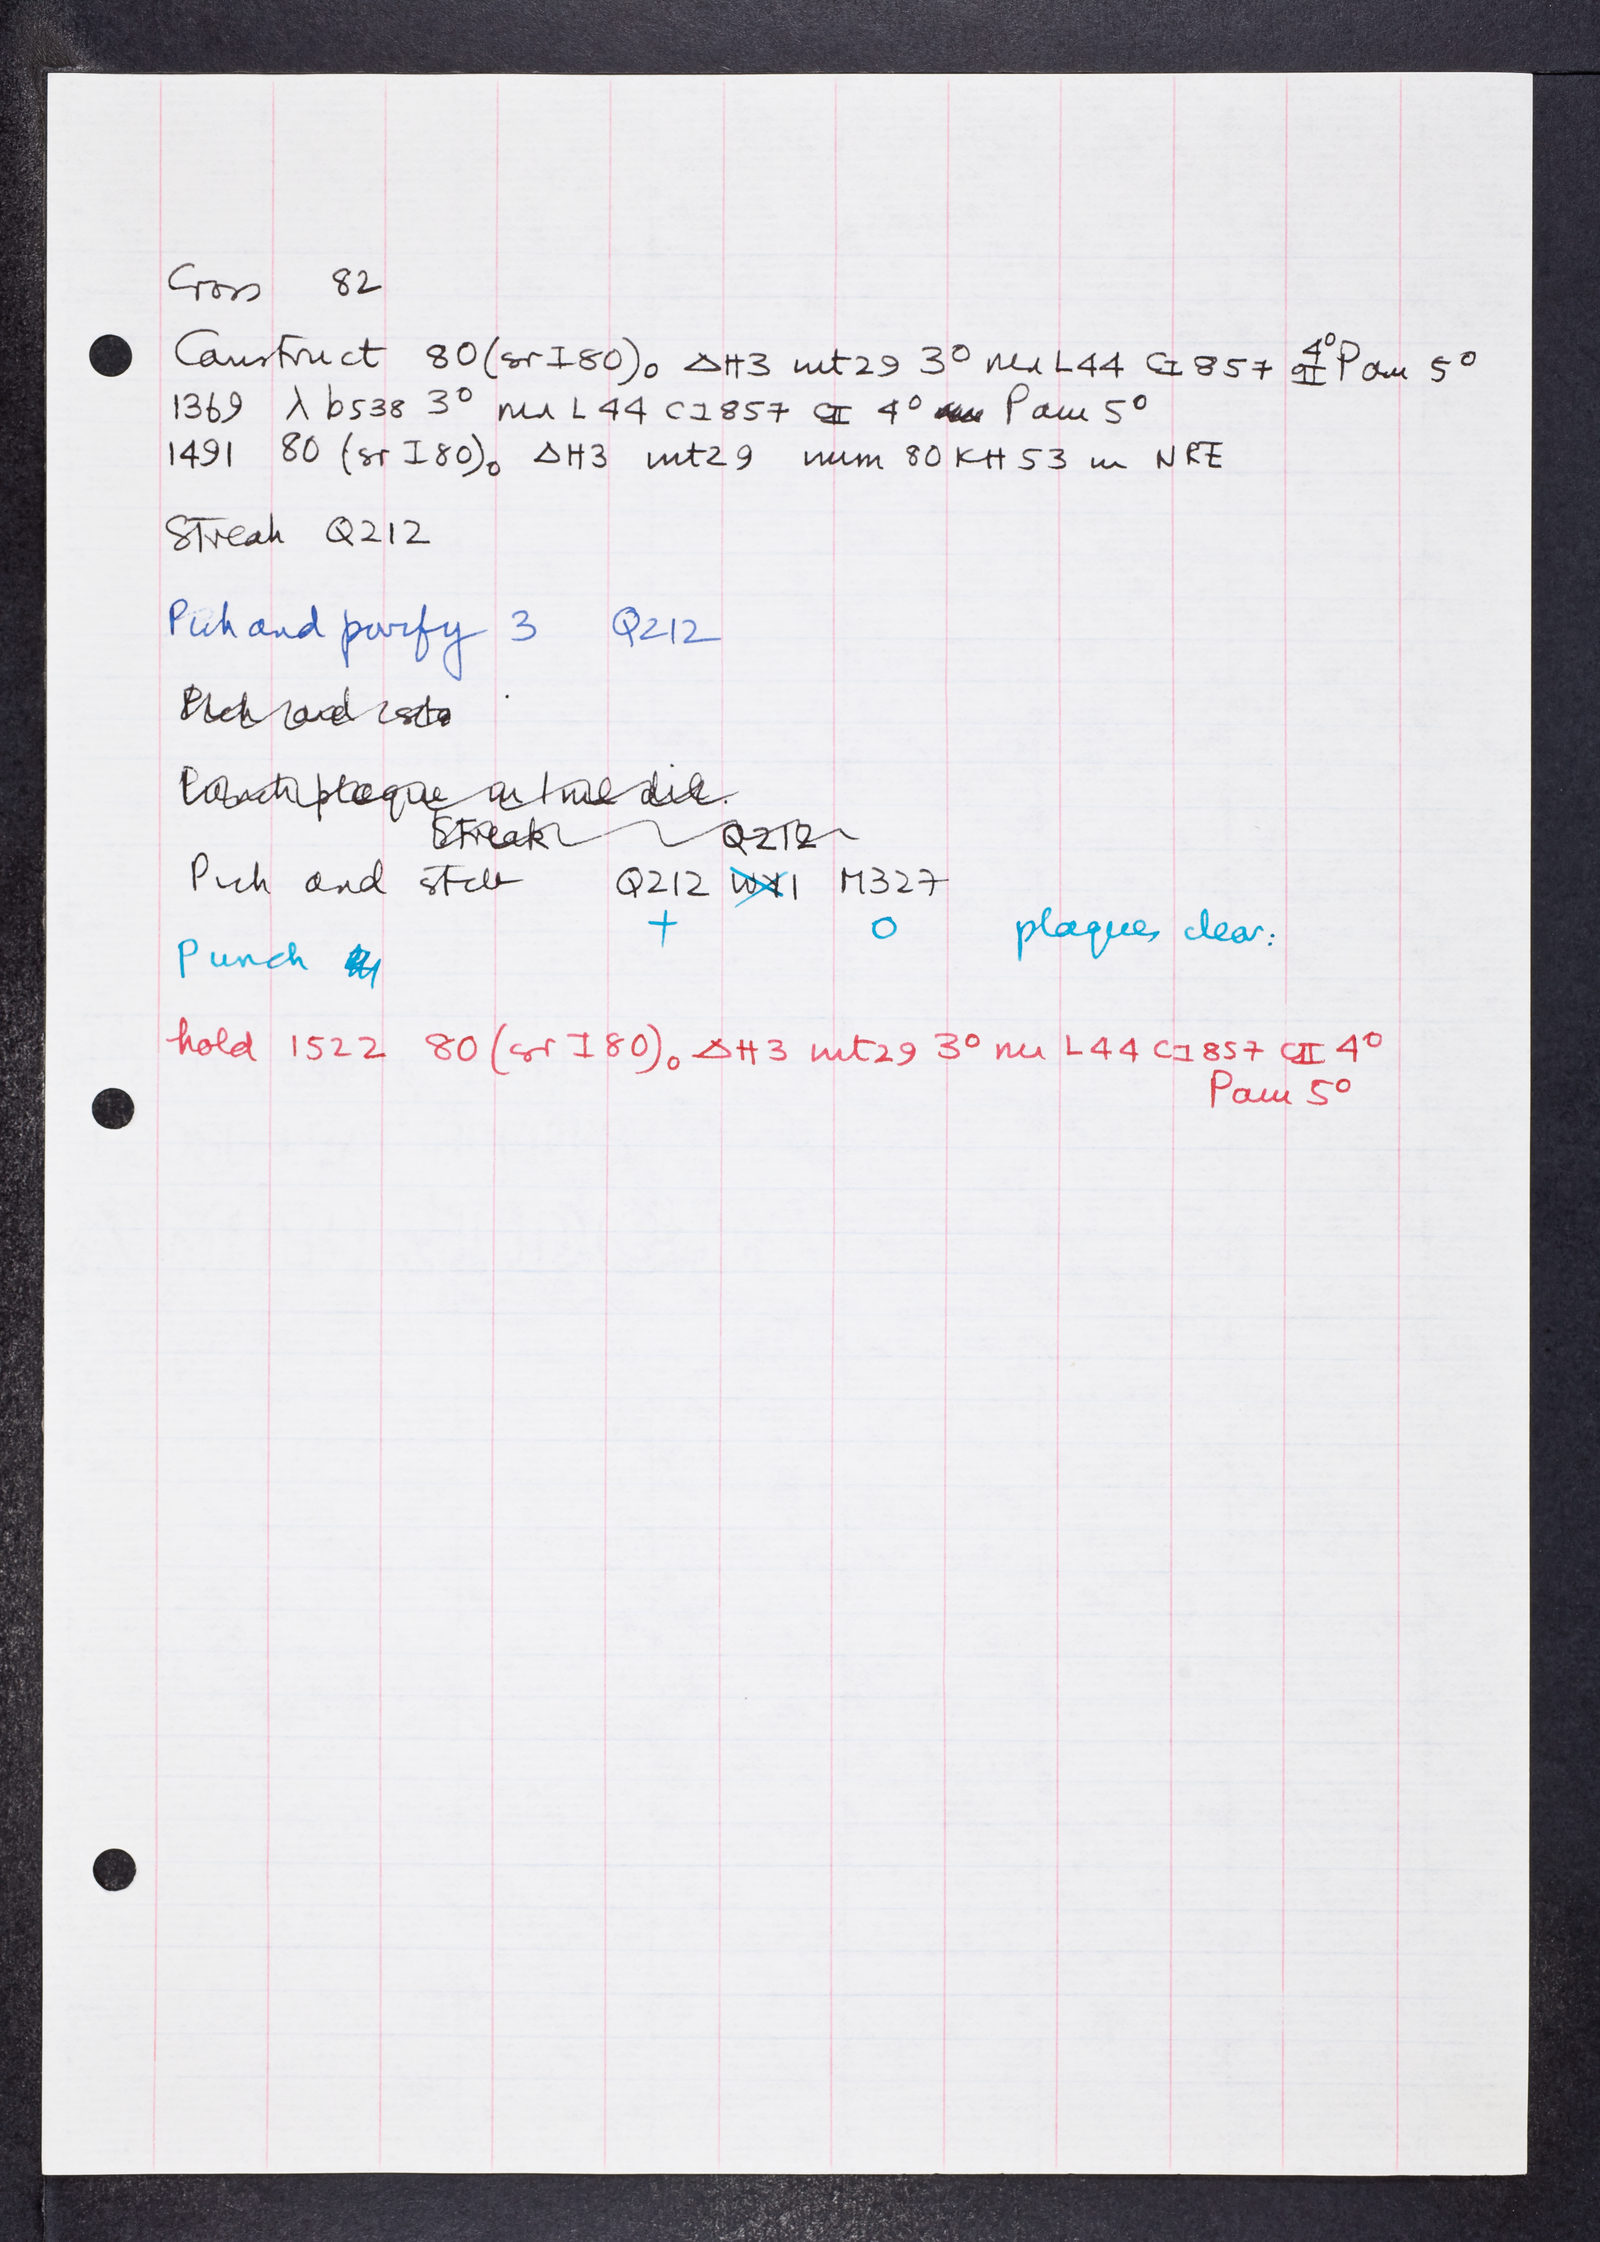 Cross 82
Construct 80(srI80)o ΔH3 int29 3° nin L44 cI857 cII 4° Pam 5°
1369 λ b538 3° nin L44 cI857 cII 4° Pam 5°
1491 80 (srI80)o ΔH3 int29 num 80 KH53 in NRE
Streak Q212
Pick and purify 3 Q212
Pick and
plaque
Streak Q212
Pick and stab Q212 M327
+ O plaques clear:
Punch
hold 1522 80(srI80)o ΔH3 int29 3° nin L44 cI857 cII 4°
Pam 5°